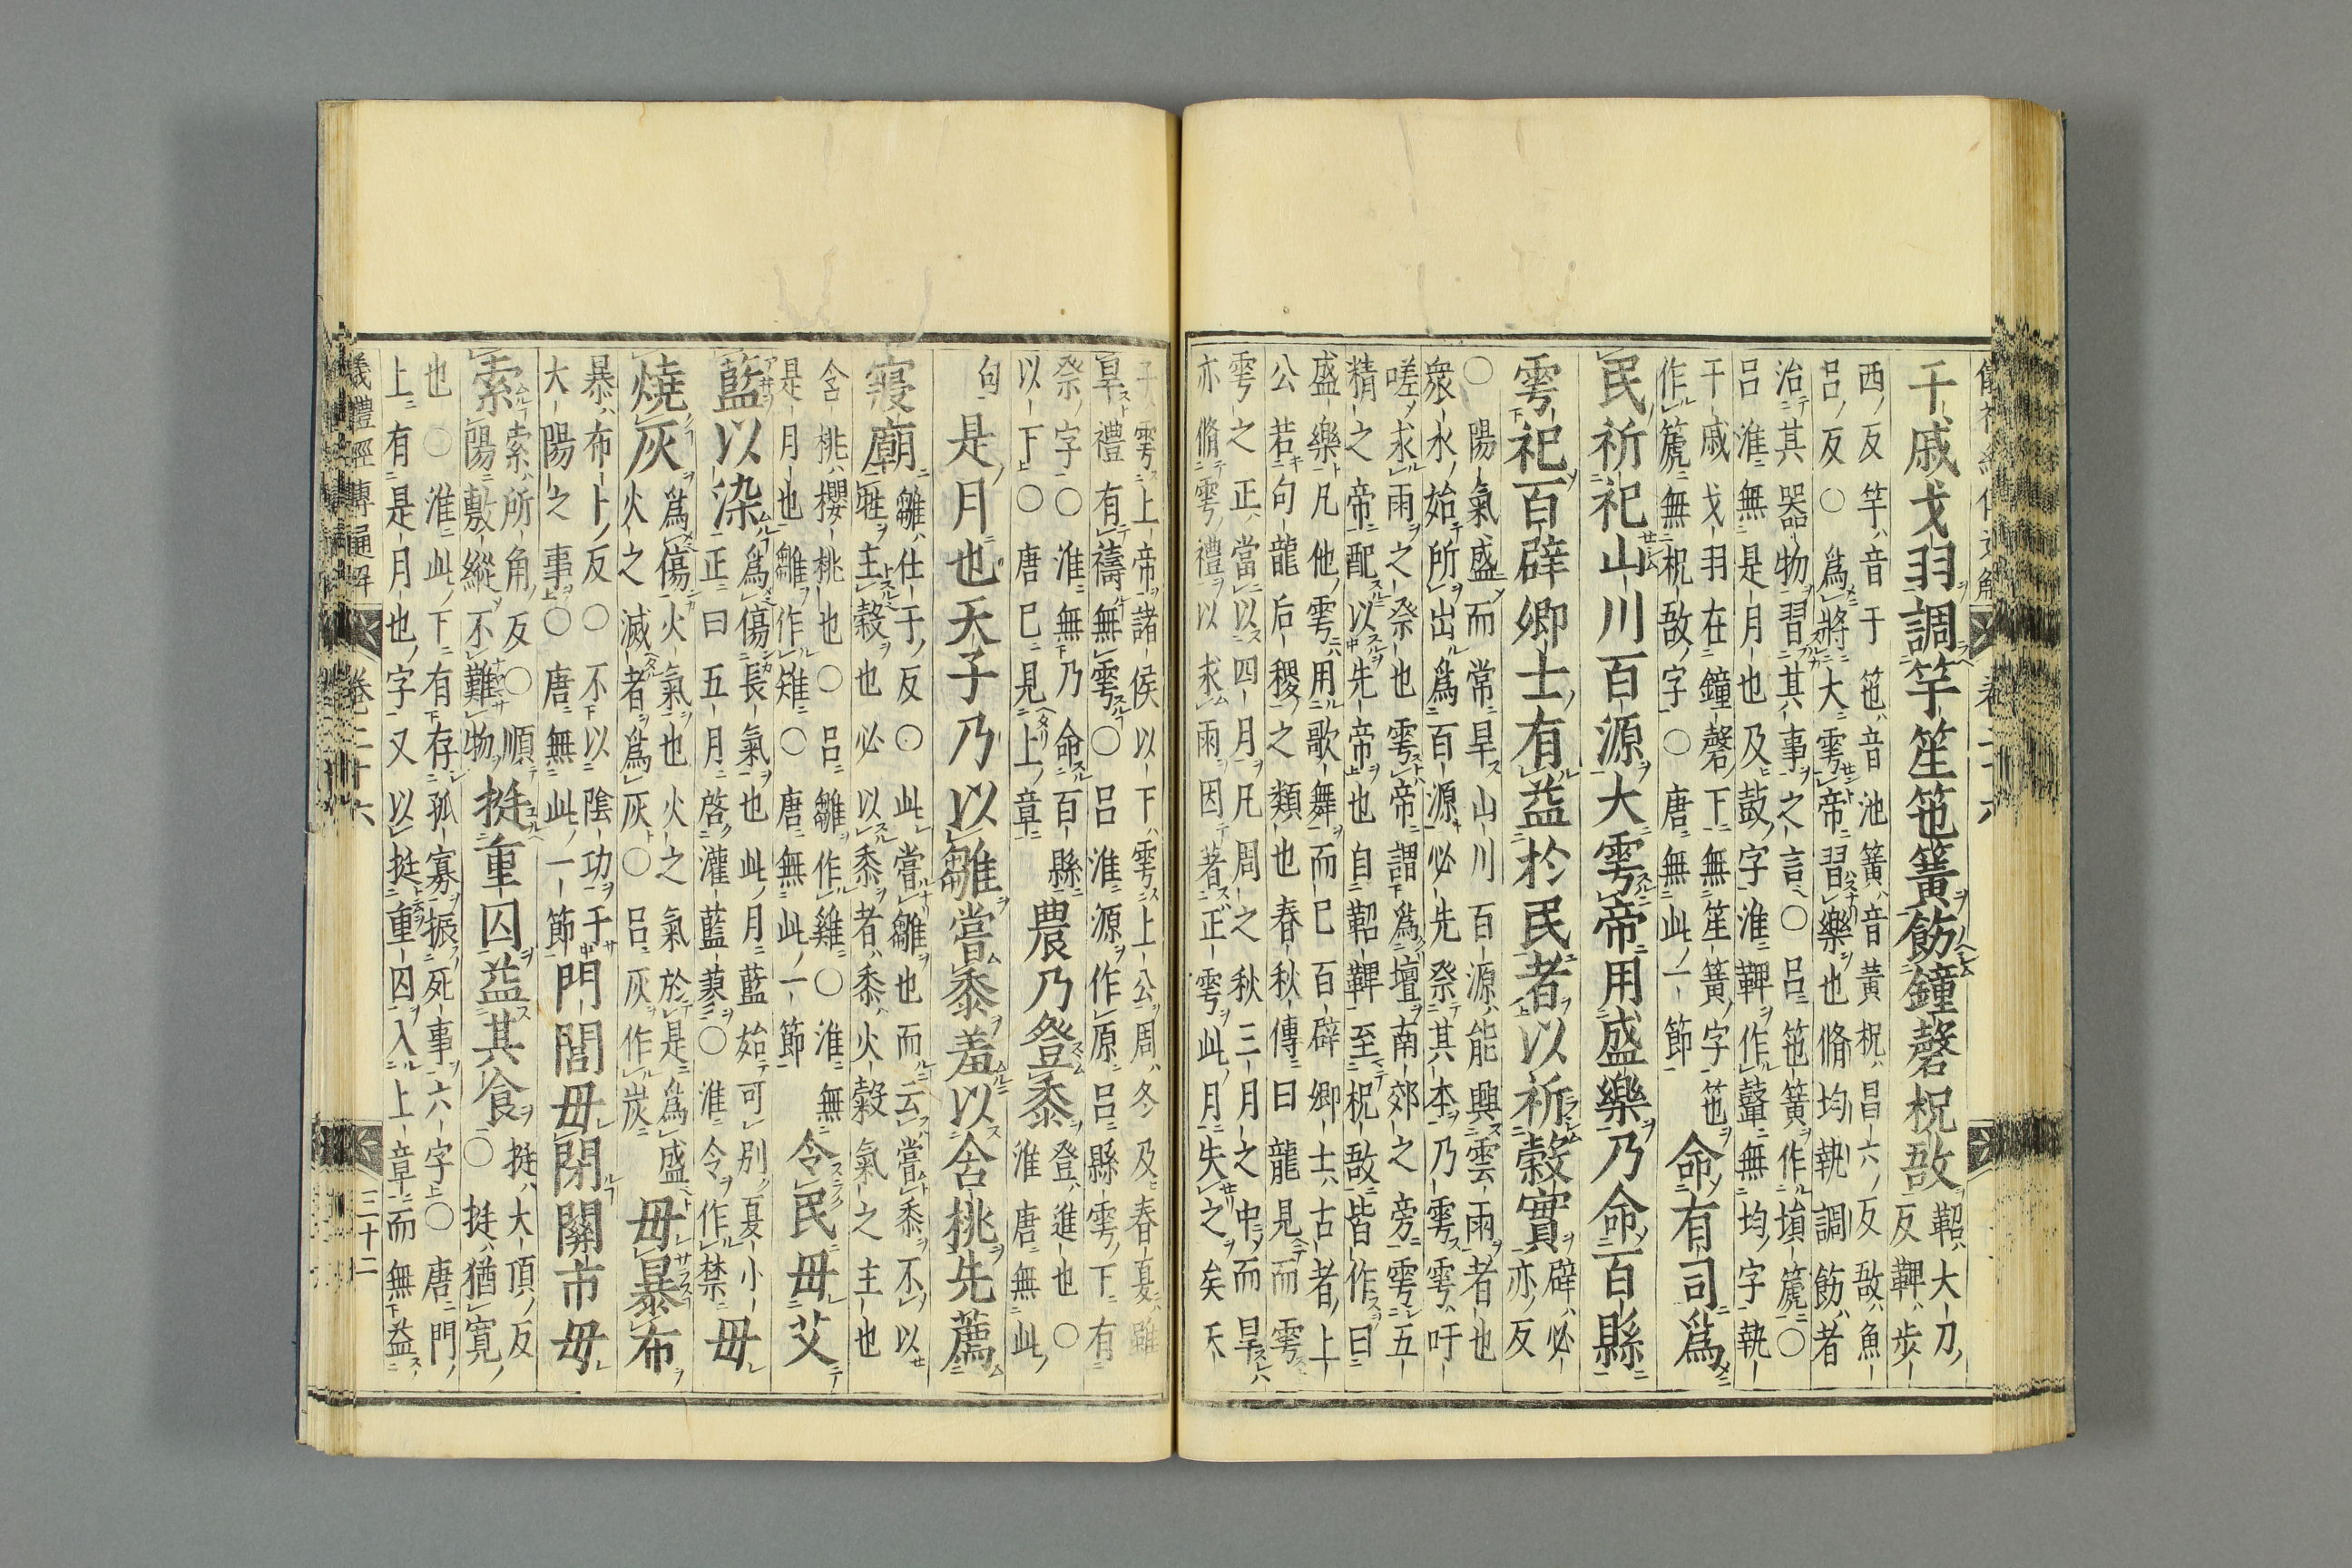 干戚戈羽調竽笙竾簧飭鐘磬柷敔
鞀大刀
反鞞步
西反竽音于竾音池簧音黄柷昌六反敔魚
呂反〇爲將大雩帝習樂也脩均執調飭者
治其器物習其事之言〇呂竾簧作塤篪〇
呂淮無是月也及鼓字淮鞞作鼙無均字執
干戚戈羽在鐘磬下無笙簧字竾
作篪無柷敔字〇唐無此一節
命有司爲
民祈祀山川百源大雩帝用盛樂乃命百縣
雩祀百辟卿士有益於民者以祈穀實
辟必
亦反
〇陽氣盛而常旱山川百源能興雲雨者也
衆水始所出爲百源必先祭其本乃雩雩吁
嗟求雨之祭也雩帝謂爲壇南郊之旁雩五
精之帝配以先帝也自鞀鞞至柷敔皆作曰
盛樂凡他雩用歌舞而已百辟卿士古者上
公若句龍后稷之類也春秋傳曰龍見而雩
雩之正當以四月凡周之秋三月之中而旱
亦脩雩禮以求雨因著正雩此月失之矣天
子雩上帝諸侯以下雩上公周冬及春夏雖
旱禮有禱無雩〇呂淮源作原呂縣雩下有
祭字〇淮無乃命百縣
以下〇唐已見上章
農乃登黍
登進也〇
淮唐無此
句
是月也天子乃以雛嘗黍羞以含桃先薦
寢廟
雛仕于反〇此嘗雛也而云嘗黍不以
牲主穀也必以黍者黍火穀氣之主也
含桃櫻桃也〇呂雛作雞〇淮無
是月也雛作雉〇唐無此一節
令民毋艾
藍以染
爲傷長氣也此月藍始可別夏小
正曰五月啓灌藍蓼〇淮令作禁
毋
燒灰
爲傷火氣也火之氣於是爲盛
火之滅者爲灰〇呂灰作炭
毋暴布
暴布卜反〇不以陰功干
大陽之事〇唐無此一節
門閭毋閉關市毋
索
索所角反〇順
陽敷縱不難物
挺重囚益其食
挺大頂反
〇挺猶寬
也〇淮此下有存孤寡振死事六字〇唐門
上有是月也字又以挺重囚入上章而無益
儀禮經傳通解
卷二十六
三十二